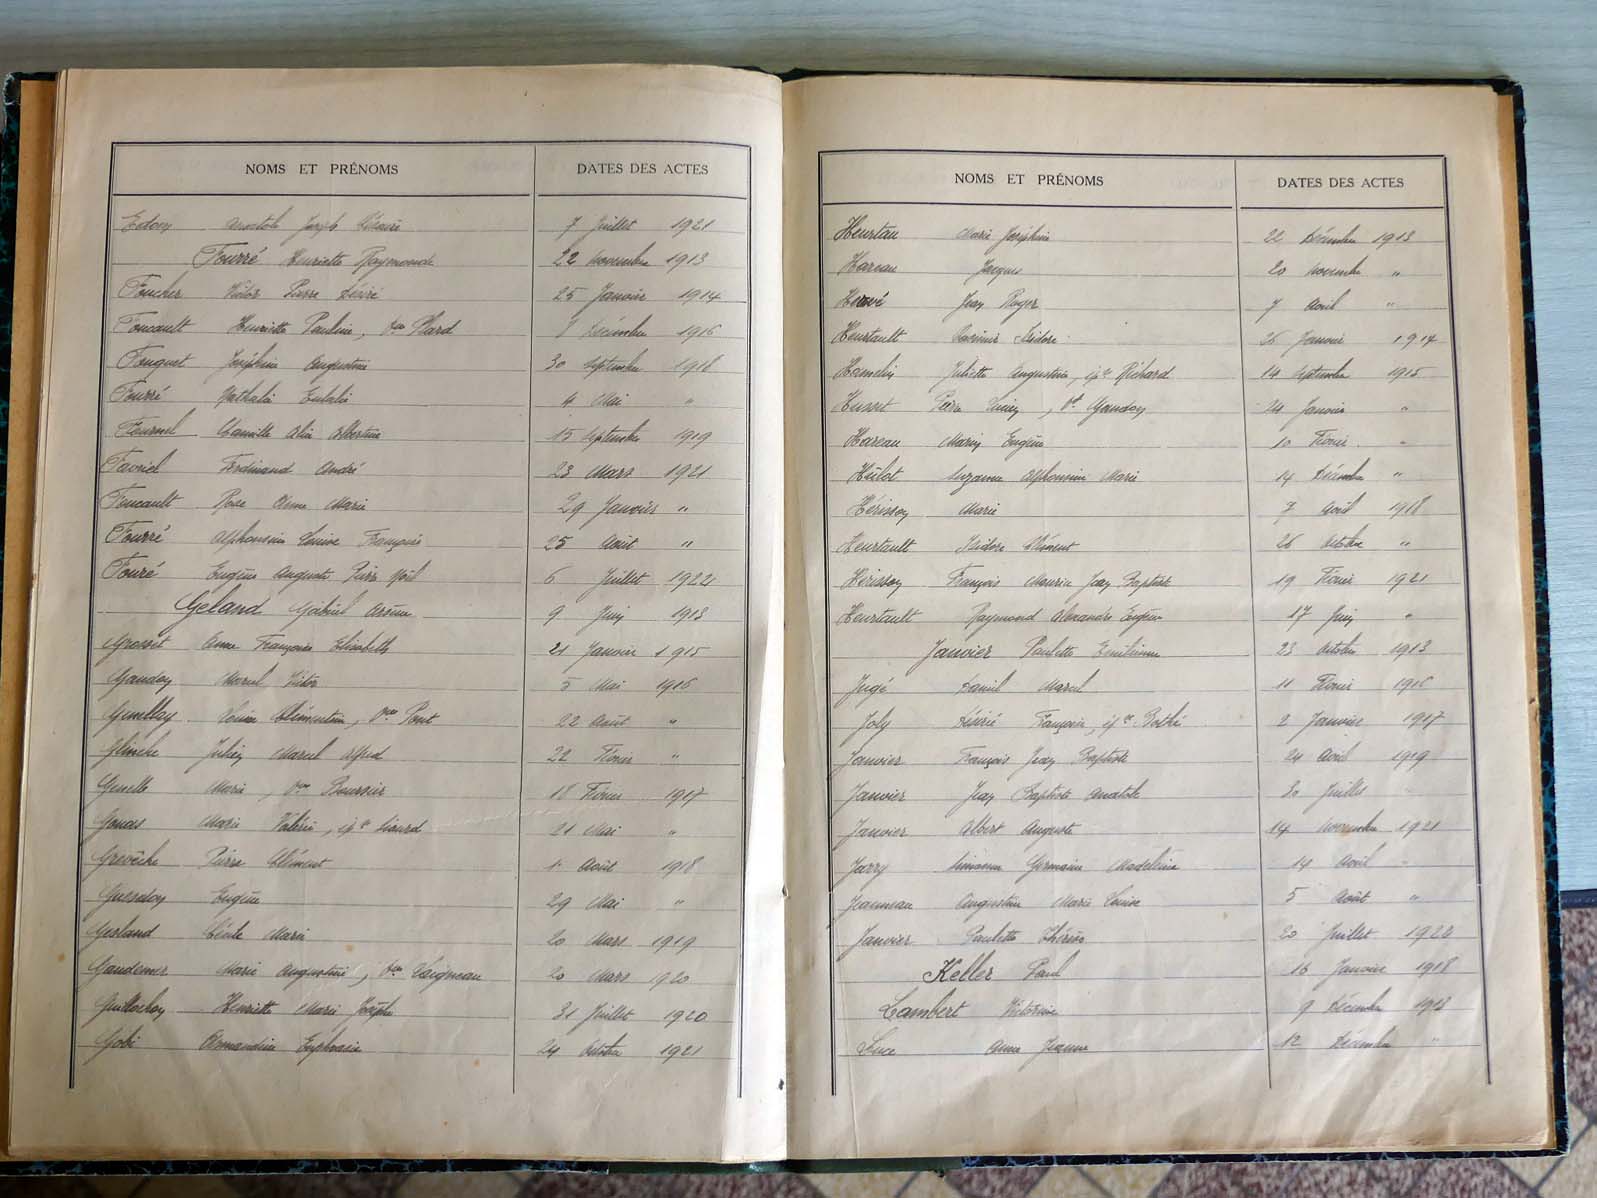 NOMS ET PRÉNOMS DATES DES ACTES
Edon Anatole Joseph Désiré 7 Juillet 1921
Fourré Henriette Raymonde 22 Novembre 1913
Foucher Victor Pierre Désiré 25 Janvier 1914
Foucault Henriette Pauline, Vve Plard 8 Décembre 1916
Fouquet Joséphine Augustine 30 Septembre 1918
Fourré Nathalie Eulalie 4 Mai "
Fournel Camille Albertine 15 Septembre 1919
Favriel Ferdinand André 23 Mars 1921
Foucault Rose Anne Marie 29 Janvier "
Fourré Alphonsine Louise Françoise 25 Août "
Fouré Eugène Auguste Pierre Noël 6 Juillet 1922
Geland Gabriel Arsène 9 Juin 1913
Grosset Anne Françoise Elisabeth 21 Janvier 1915
Gandon Marcel Victor 5 Mai 1916
Louise Clémentine, Vve Pont 22 Août "
Julien Marcel Alfred 22 Février "
Genelle Marie, Vve Boursier 18 Février 1917
Marie Valérie, épse Sicard 21 Mai "
Grevêche Pierre Clément 1er Août 1918
Guesdon Eugène 29 Mai "
Gerland Cécile Marie 20 Mars 1919
Gaudemer Marie Augustine, Vve Daigneau 20 Mars 1920
Guillochon Henriette Marie Josèphe 31 Juillet 1920
Gobi Armandine Euphrasie 24 Octobre 1921
NOMS ET PRÉNOMS DATES DES ACTES
Heurtau Marie Joséphine 22 Décembre 1913
Hareau Jacques 20 Novembre "
Hervé Jean Roger 7 Avril "
Heurtault Isidore 26 Janvier 1914
Hamelin Juliette Augustine, épse Richard 14 Septembre 1915
Husset Pierre Louis, Vf Gandon 24 Janvier "
Hareau Marin Eugène 10 Février "
Hulot Suzanne Alphonsine Marie 14 Décembre "
Hérisson Marie 7 Avril 1918
Heurtault Isidore Clément 26 Octobre "
Hérisson François Maurice Jean Baptiste 19 Février 1921
Heurtault Raymond Alexandre Eugène 17 Juin "
Janvier Paulette Emilienne 23 Octobre 1913
Jugé Daniel Marcel 11 Février 1916
Joly Désirée Françoise, épse Bothé 2 Janvier 1917
Janvier François Jean Baptiste 24 Avril 1919
Janvier Jean Baptiste Anatole 30 Juillet "
Janvier Albert Auguste 14 Novembre 1921
Jarry Simonne Germaine Madeleine 14 Avril "
Jeanneau Augustine Marie Louise 5 Août "
Janvier Paulette Thérèse 20 Juillet 1922
Keller Paul 16 Janvier 1918
Lambert Victorine 9 Décembre 1913
Luce Anne Jeanne 12 Décembre "